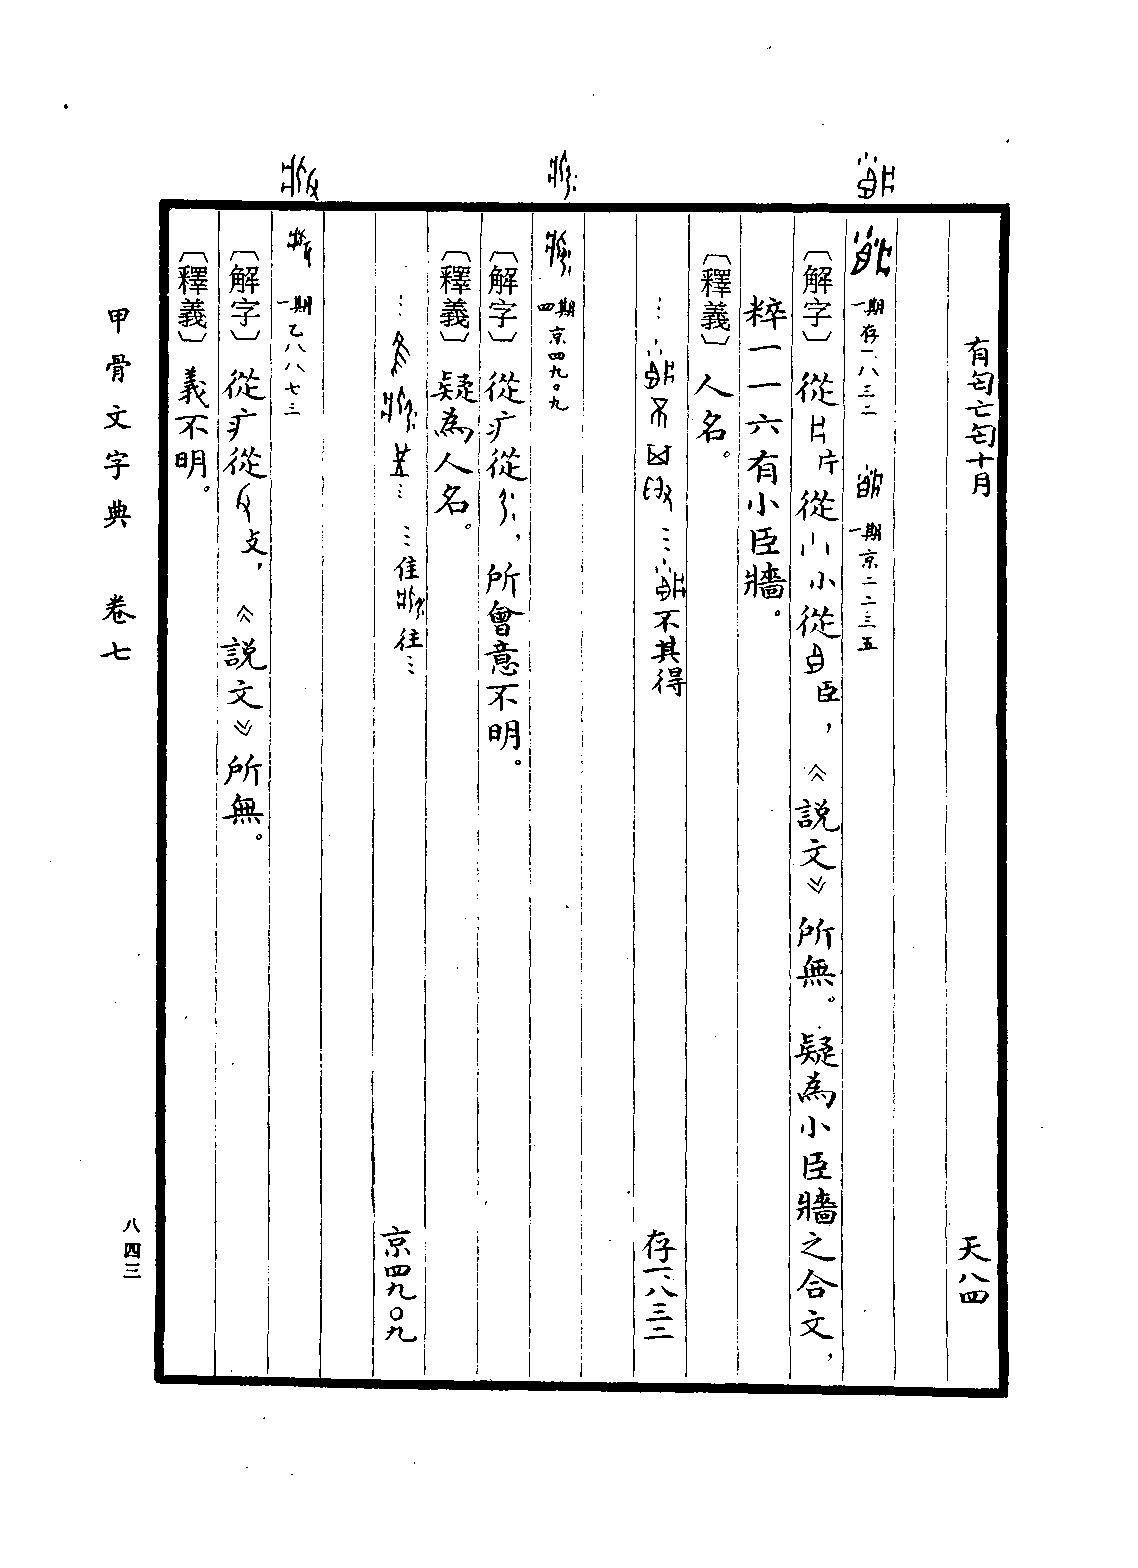 有匄亡匄十月 天八四
一期存一.八三二 一期京二二三五
〔解字〕從片從小從臣，《說文》所無。疑為小臣牆之合文，
粹一一六有小臣牆。
〔釋義〕人名。
…不其得 存一.八三二
四期京四九〇九
〔解字〕從疒從，所會意不明。
〔釋義〕疑為人名。
…隹往… 京四九〇九
一期乙八八七三
〔解字〕從疒從攴，《說文》所無。
〔釋義〕義不明。
甲骨文字典 卷七
八四三